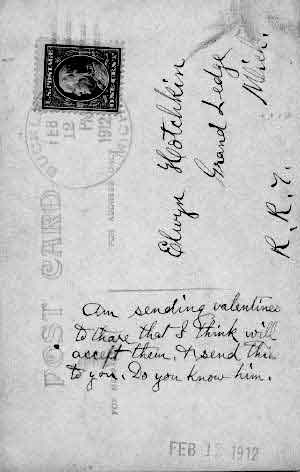 U.S. POSTAGE
ONE CENT
FEB
12
PM
1912
MICH
POST CARD
FOR ADDRESS ONLY
Elwyn Hotchkin
Grand Ledge
Mich.
R. R. 7.
Am sending valentines
to those that I think will
accept them. & send this
to you. Do you know him.
FEB 12 1912